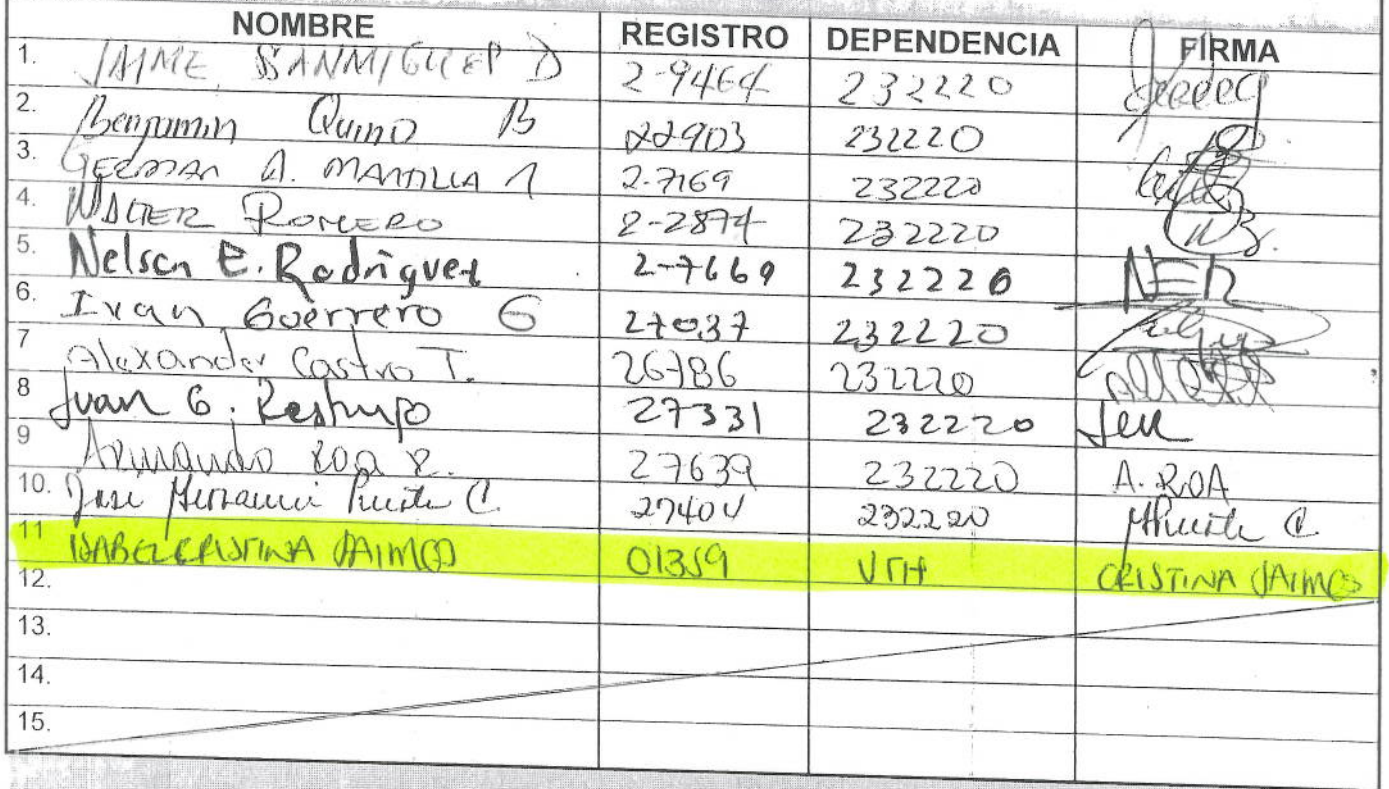 NOMBRE REGISTRO DEPENDENCIA FIRMA
1. JAIME SANMIGUEL D 2-9464 232220
2. Benjamin Quino B 22903 232220
3. GERMAN A. MANTILLA 2-7169 232220
4. WALTER ROMERO 2-2874 232220
5. Nelson E. Rodriguez 2-7669 232220 NER
6. Ivan Guerrero G 27037 232220
7 Alexander Castro T. 26786 232220
8 Juan G. Restrepo 27331 232220
9 Armando Roa R. 27639 232220 A. ROA
10. Jose Puente C. 27404 232220 Puente C.
11 ISABEL CRISTINA JAIMES 01359 VTH CRISTINA JAIMES
12.
13.
14.
15.